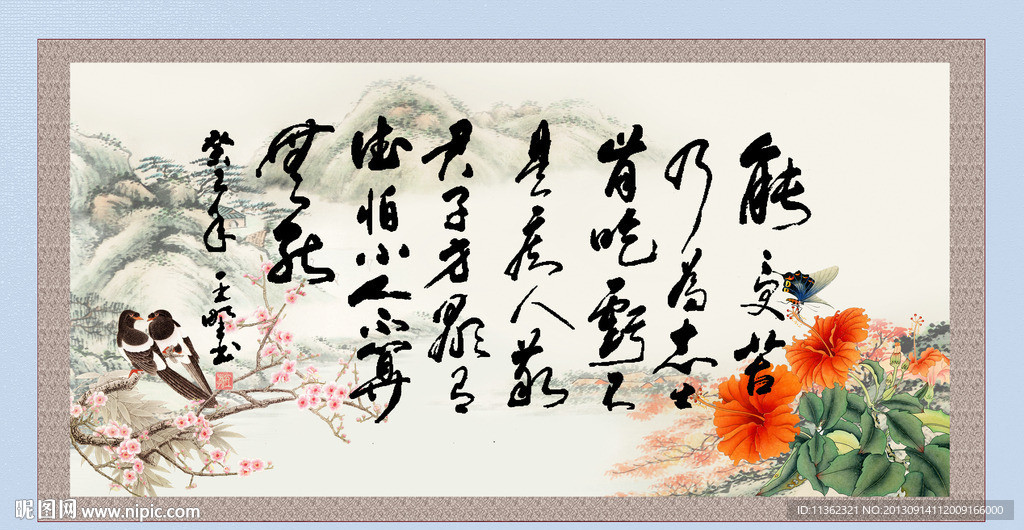 能受苦
乃為志士
肯吃虧不
是痴人敬
君子方显有
德怕小人不算
無能
癸巳年
昵图网 www.nipic.com
ID:11362321 NO:20130914112009166000